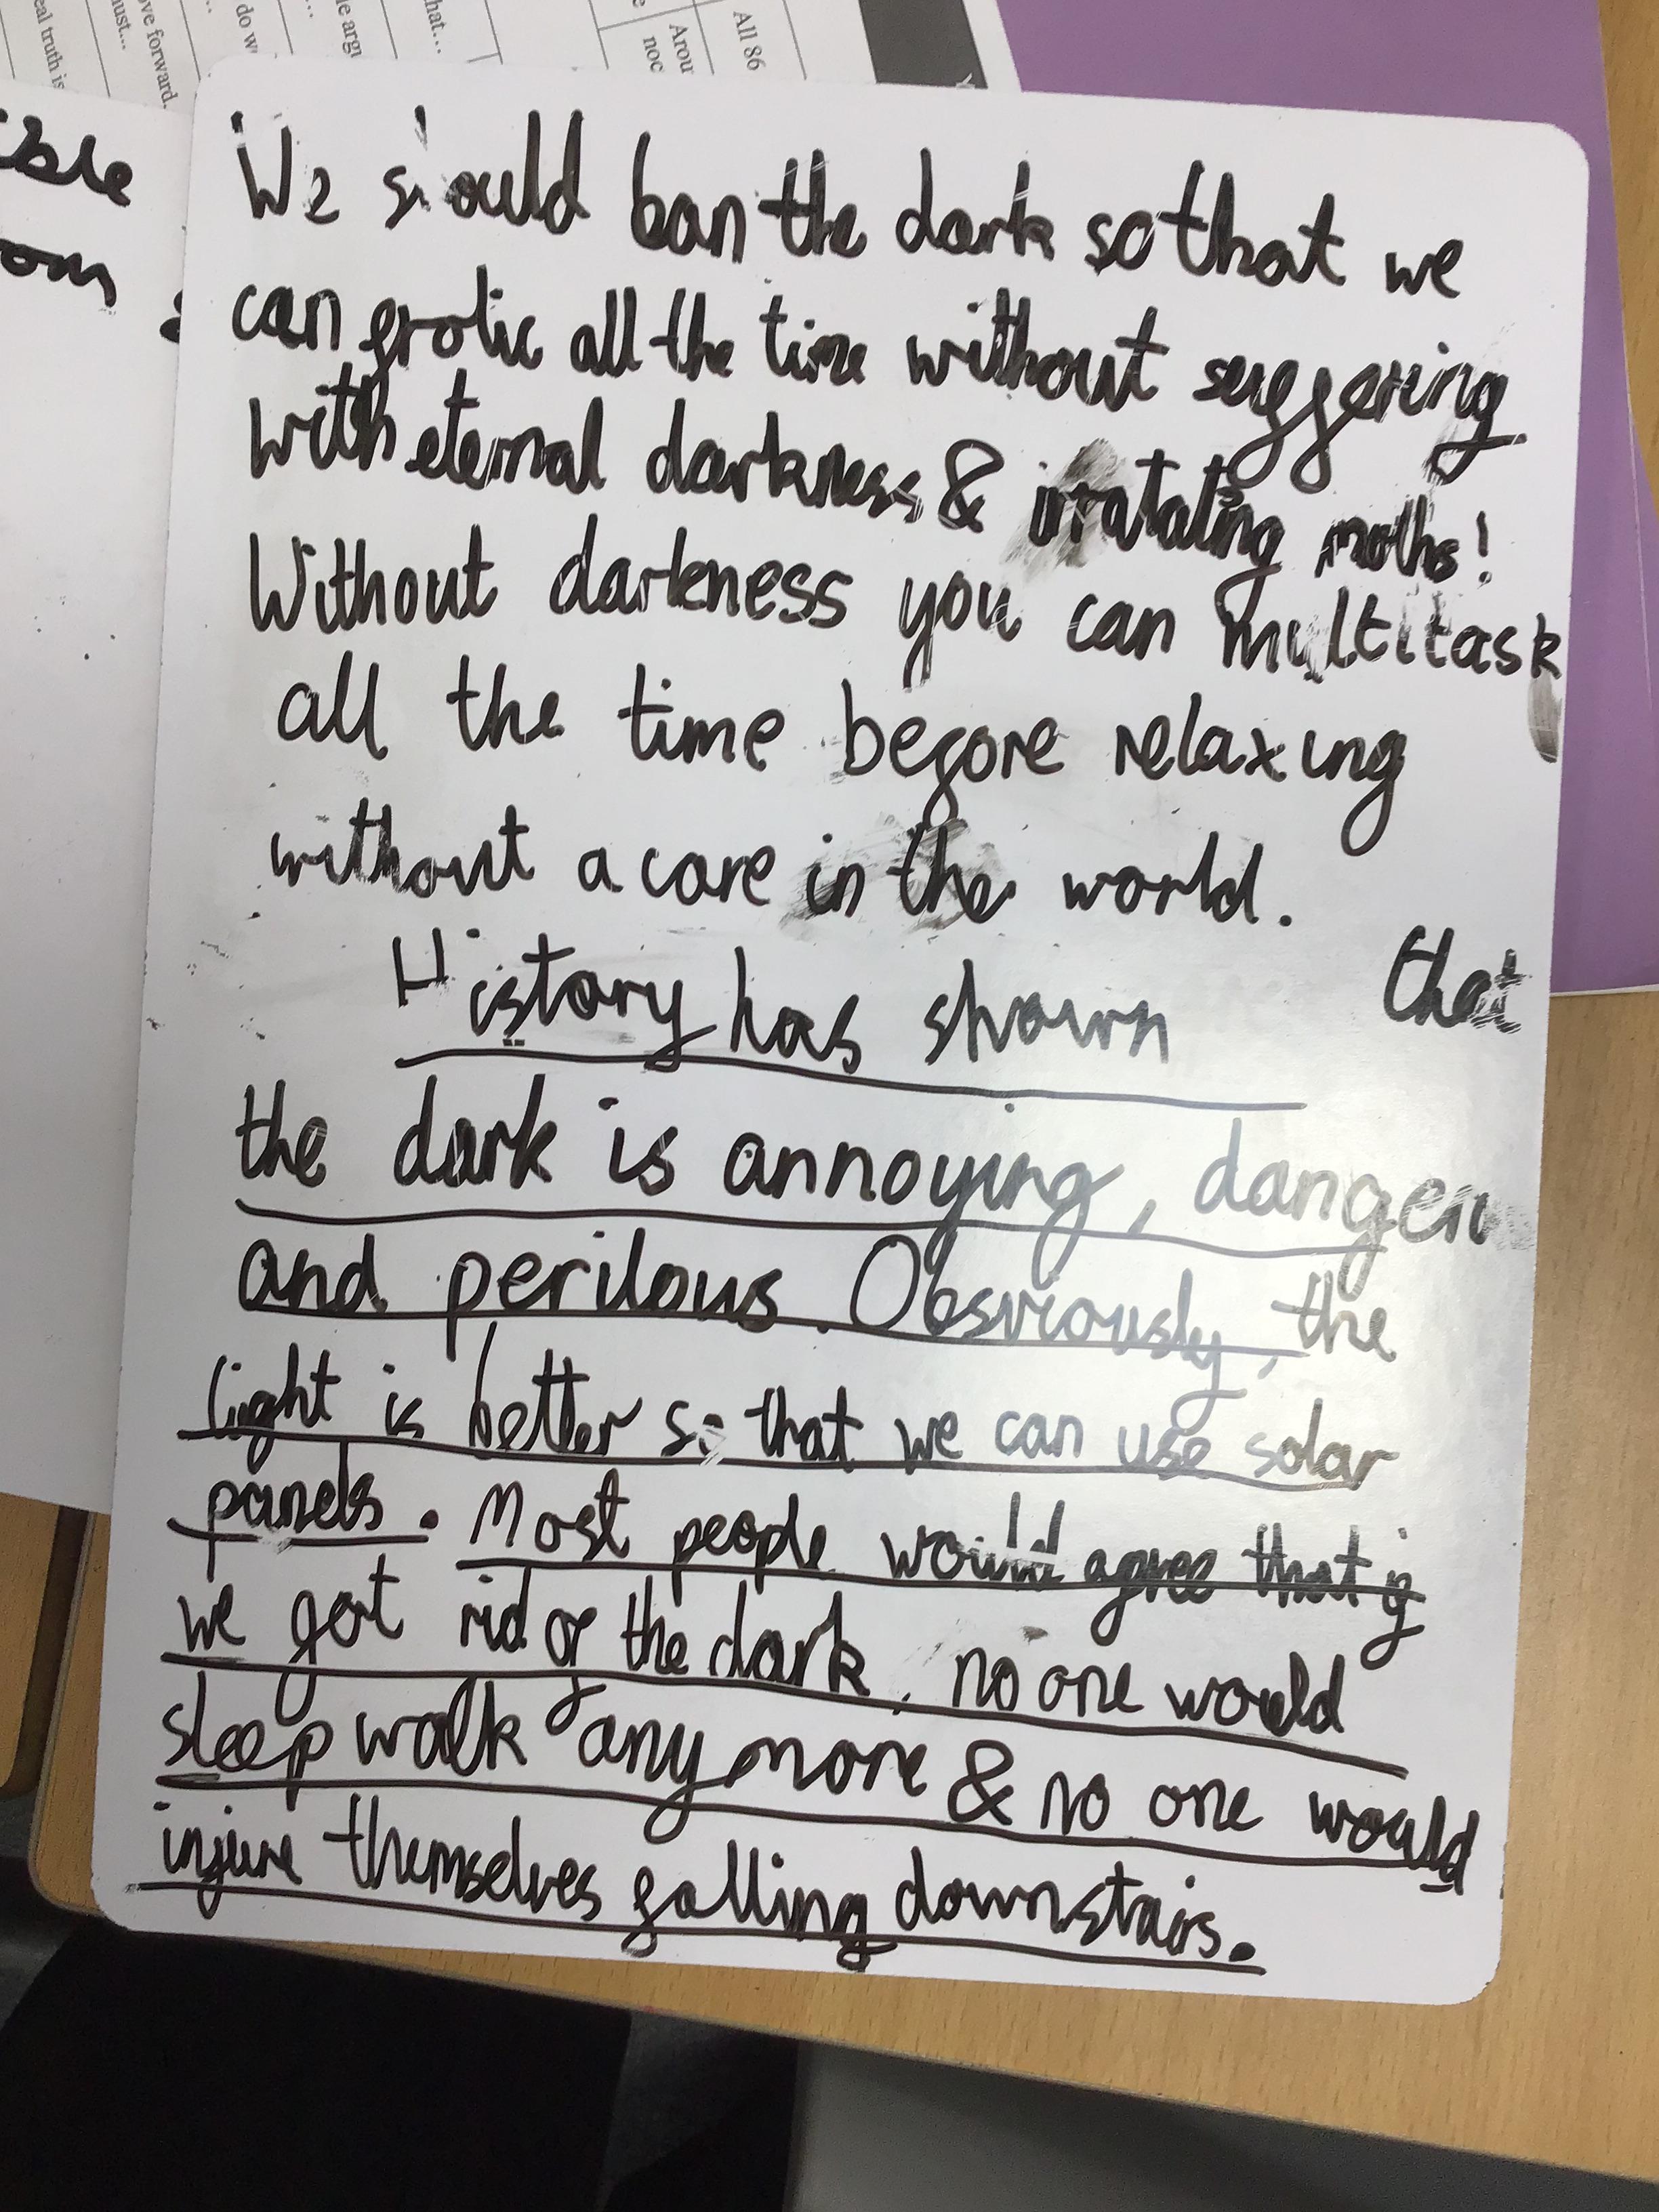 All 86
Arou
noc
e
hat...
le argu
...
do w
...
ve forward.
nust...
eal truth is
ible
om
We should ban the dark so that we
can frolic all the time without suffering
with eternal darkness & iratating moths!
Without darkness you can multitask
all the time before relaxing
without a care in the world.
History has shown that
the dark is annoying, danger
and perilous. Obsviously, the
light is better so that we can use solar
panels. Most people would agree that if
we got rid of the dark, no one would
sleep walk any more & no one would
injure themselves falling downstairs.